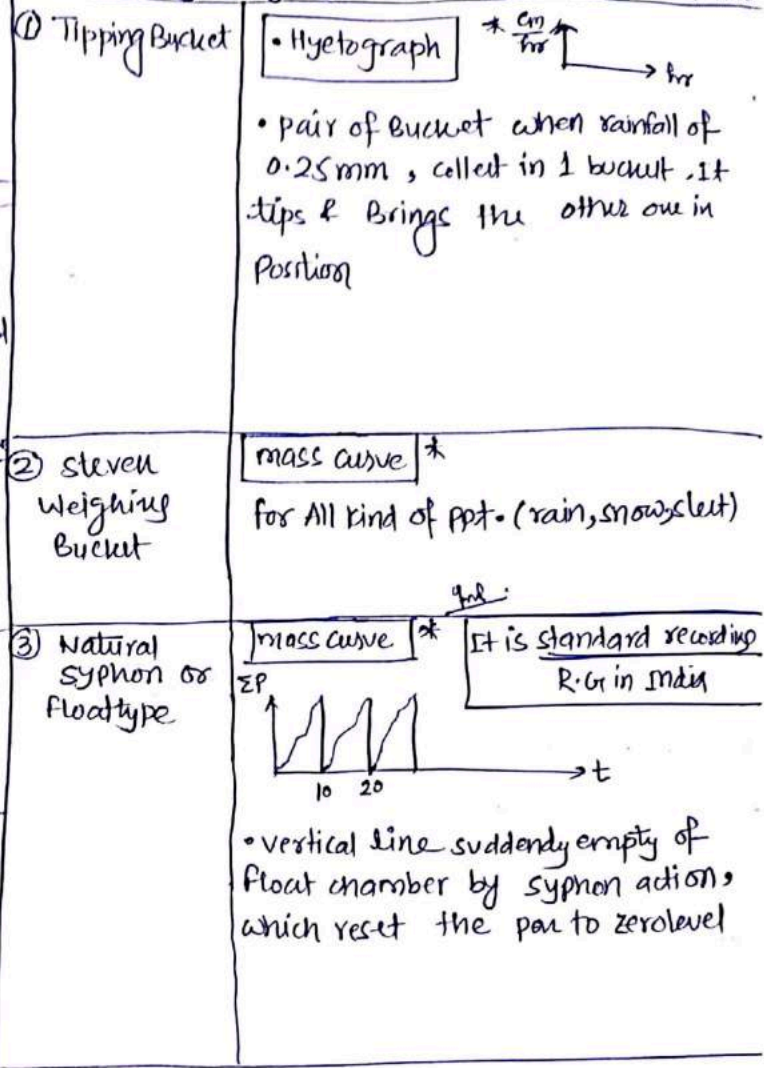 ① Tipping Bucket
• Hyetograph
* cm/hr
hr
• pair of Bucket when rainfall of
0.25mm, collect in 1 bucket. It
tips & Brings the other one in
Position
② Steven
Weighing
Bucket
mass curve *
for All kind of ppt. (rain, snow, sleet)
③ Natural
Syphon or
Float type
mass curve *
It is standard recording
R.G in India
ΣP
10 20
t
• vertical line suddendy empty of
float chamber by syphon action,
which reset the pen to zero level